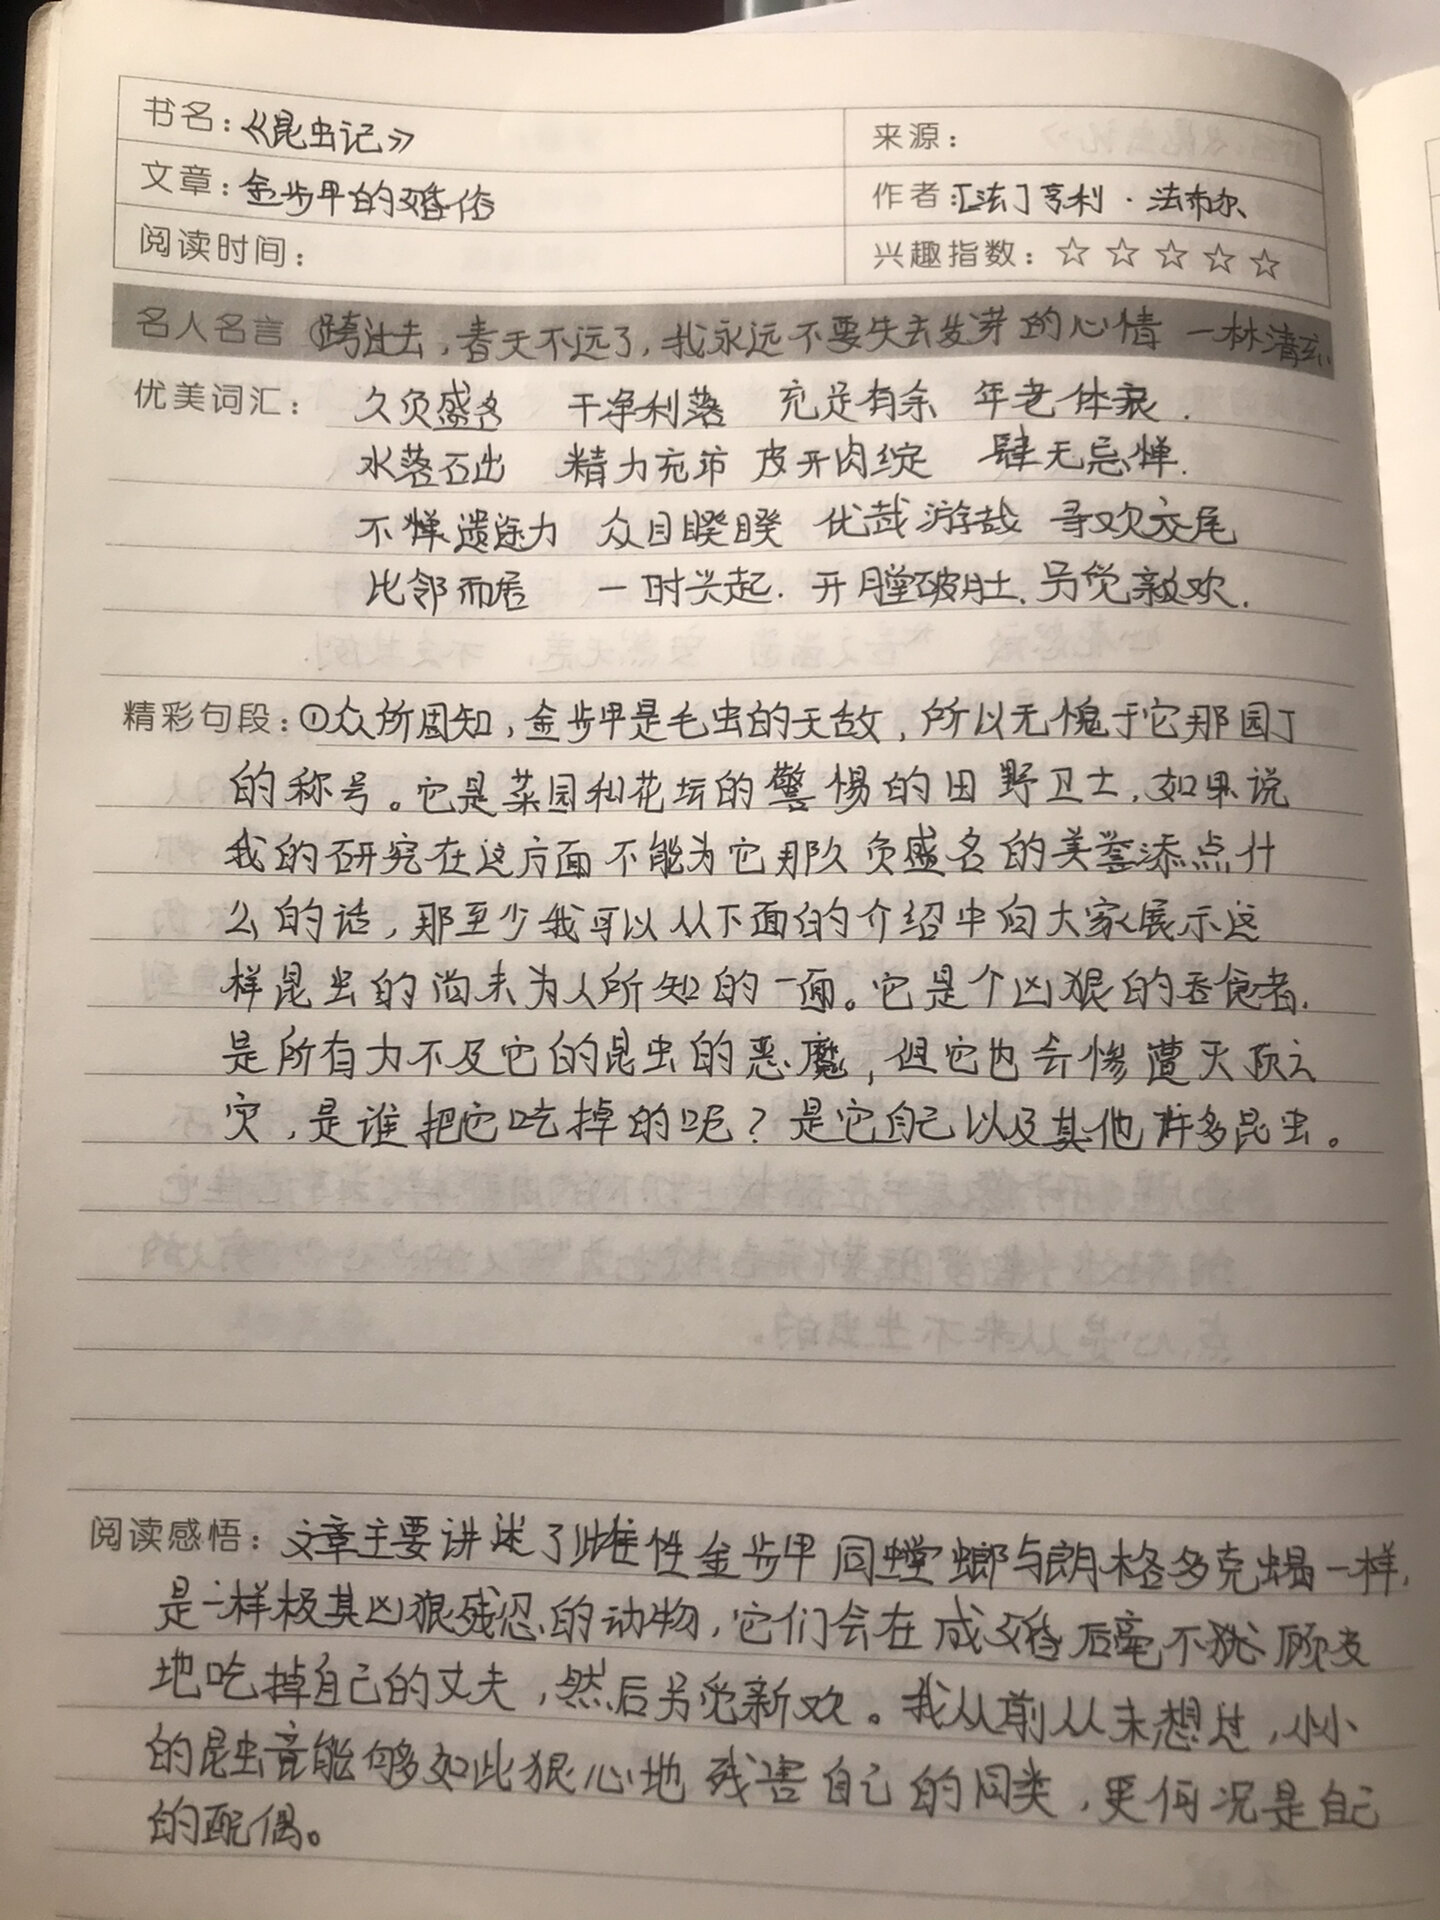 书名：《昆虫记》
来源：
文章：金步甲的婚俗
作者：[法]亨利·法布尔
阅读时间：
兴趣指数：☆☆☆☆☆
名人名言 ①跨过去，春天不远了，我永远不要失去发芽的心情 —林清玄
优美词汇： 久负盛名 干净利落 充足有余 年老体衰．
水落石出 精力充沛 皮开肉绽 肆无忌惮．
不惮遗途力 众目睽睽 优哉游哉 寻欢交尾
比邻而居 一时兴起． 开膛破肚． 另觅新欢．
精彩句段：①众所周知，金步甲是毛虫的天敌，所以无愧于它那园丁
的称号。它是菜园和花坛的警惕的田野卫士，如果说
我的研究在这方面不能为它那久负盛名的美誉添点什
么的话，那至少我可以从下面的介绍中向大家展示这
样昆虫的尚未为人所知的一面。它是个凶狠的吞食者，
是所有力不及它的昆虫的恶魔，但它也会惨遭灭顶之
灾，是谁把它吃掉的呢？是它自己以及其他许多昆虫。
阅读感悟：文章主要讲述了雌性金步甲同螳螂与朗格多克蝎一样，
是一样极其凶狠残忍的动物，它们会在成婚后毫不犹顾支
地吃掉自己的丈夫，然后另觅新欢。我从前从未想过，小小
的昆虫竟能够如此狠心地残害自己的同类，更何况是自己
的配偶。